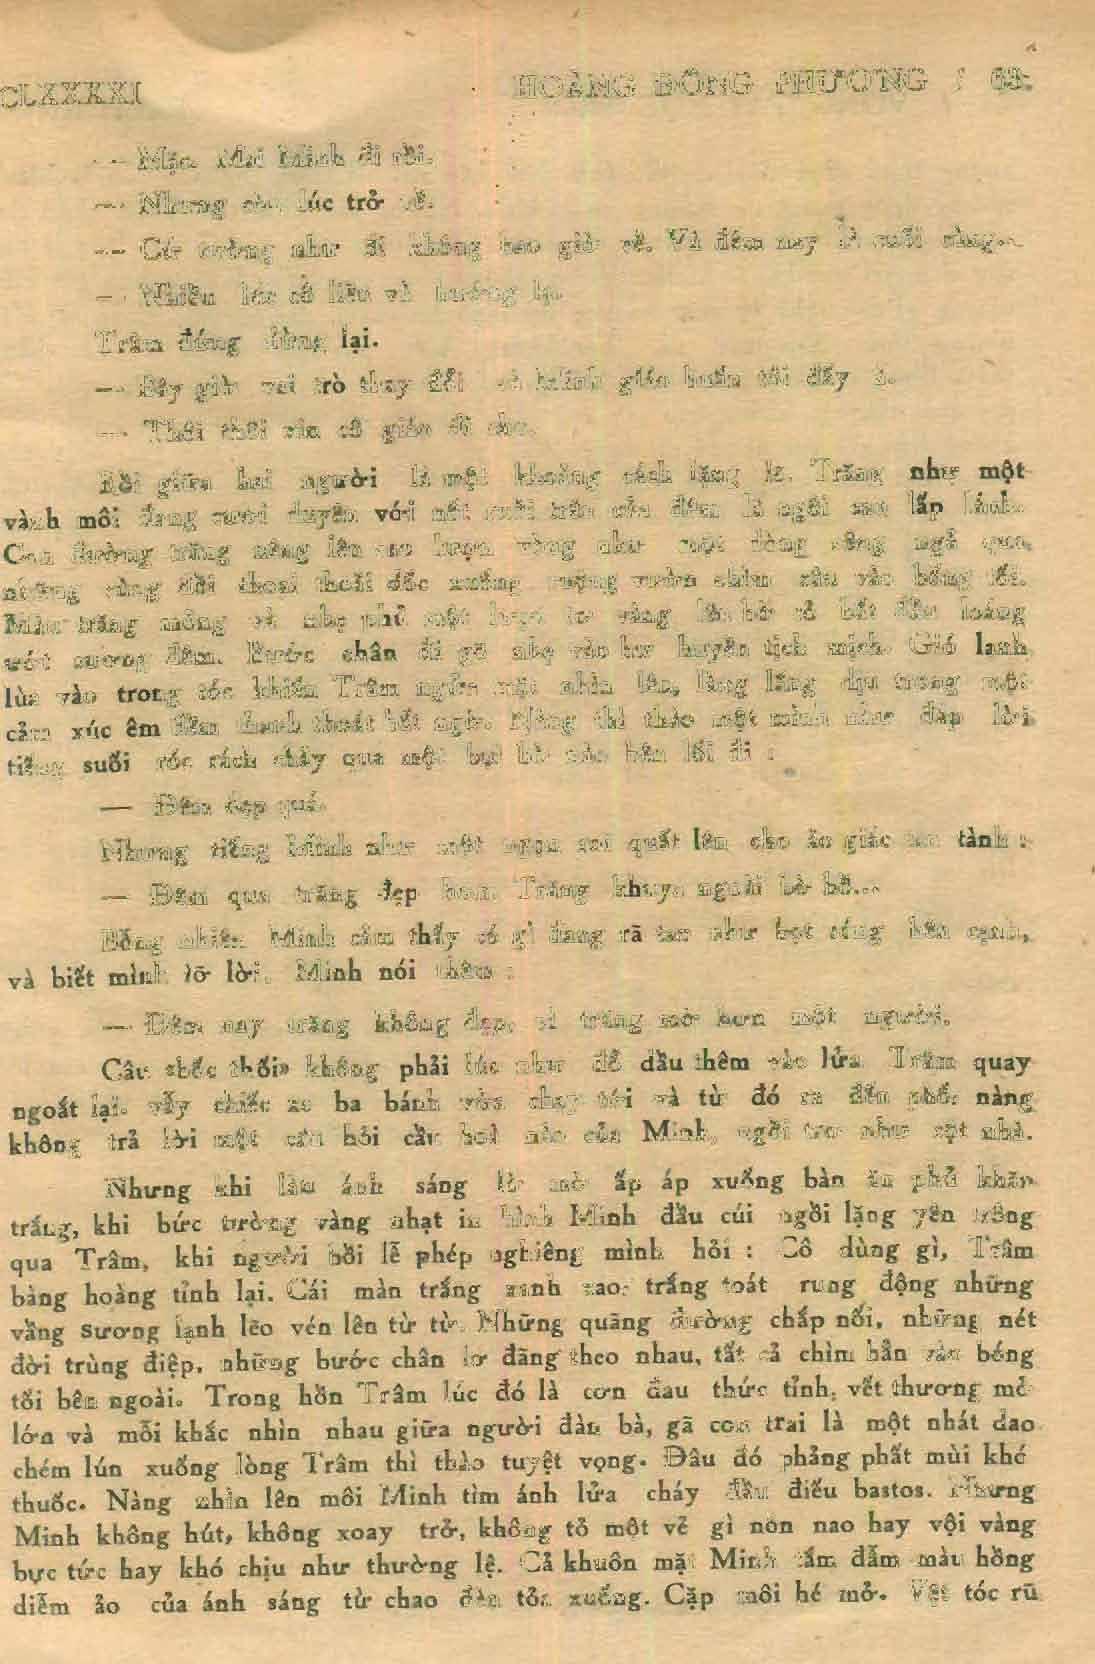 CLXXXXI HOÀNG ĐÔNG PHƯƠNG / 63
— Mặc. Mai Minh đi rồi.
— Nhưng còn lúc trở về.
— Cứ tưởng như đi không bao giờ về. Và đêm nay là cuối cùng...
— Nhiều lúc cô liều và bướng lạ.
Trâm đứng dừng lại.
— Bây giờ vai trò thay đổi và Minh giáo huấn tôi đấy à.
— Thôi thôi xin cô giáo đi cho.
Rồi giữa hai người là một khoảng cách lặng lẽ. Trăng như một
vành môi đang cười duyên với nốt ruồi trên của đêm là ngôi sao lấp lánh.
Con đường trăng nâng lên cao lượn vòng như một dòng sông ngỏ qua
những đồi thoai thoải dốc xuống ruộng vườn chìm sâu vào bóng tối.
Màu trăng mỏng và nhẹ phủ một lượt tơ vàng lên bờ cỏ bắt đầu loáng
ướt sương đêm. Bước chân đi gõ nhẹ vào hư huyền tịch mịch. Gió lạnh
lùa vào trong tóc khiến Trâm ngửa mặt nhìn lên, lâng lâng dịu trong một
cảm xúc êm đềm thanh thoát bất ngờ. Nàng thì thào một mình như đáp lời
tiếng suối róc rách chảy qua một bụi bờ nào bên lối đi :
— Đêm đẹp quá.
Nhưng tiếng Minh như một ngọn roi quất lên cho ảo giác tan tành :
— Đêm qua trăng đẹp hơn. Trăng khuya ngoài bờ hồ...
Bỗng nhiên Minh cảm thấy có gì đang rã tan như bọt sóng bên cạnh,
và biết mình lỡ lời. Minh nói thêm :
— Đêm nay trăng không đẹp, vì trăng mờ hơn một người.
Câu «bốc thối» không phải lúc như đổ dầu thêm vào lửa. Trâm quay
ngoắt lại, vẫy chiếc xe ba bánh vừa chạy tới và từ đó ra đến phố, nàng
không trả lời một câu hỏi cầu hoà nào của Minh, ngồi trơ như cột nhà.
Nhưng khi làn ánh sáng lờ mờ ấp áp xuống bàn ăn phủ khăn
trắng, khi bức tường vàng nhạt in hình Minh đầu cúi ngồi lặng yên trông
qua Trâm, khi người bồi lễ phép nghiêng mình hỏi : Cô dùng gì, Trâm
bàng hoàng tỉnh lại. Cái màn trắng xanh xao, trắng toát rung động những
vầng sương lạnh lẽo vén lên từ từ. Những quãng đường chắp nối, những nét
đời trùng điệp, những bước chân lơ đãng theo nhau, tất cả chìm hẳn vào bóng
tối bên ngoài. Trong hồn Trâm lúc đó là cơn đau thức tỉnh, vết thương mở
lớn và mỗi khắc nhìn nhau giữa người đàn bà, gã con trai là một nhát dao
chém lún xuống lòng Trâm thì thào tuyệt vọng. Đâu đó phảng phất mùi khé
thuốc. Nàng nhìn lên môi Minh tìm ánh lửa cháy đầu điếu bastos. Nhưng
Minh không hút, không xoay trở, không tỏ một vẻ gì nôn nao hay vội vàng
bực tức hay khó chịu như thường lệ. Cả khuôn mặt Minh tắm đẫm màu hồng
diễm ảo của ánh sáng từ chao đèn tỏa xuống. Cặp môi hé mở. Vệt tóc rũ